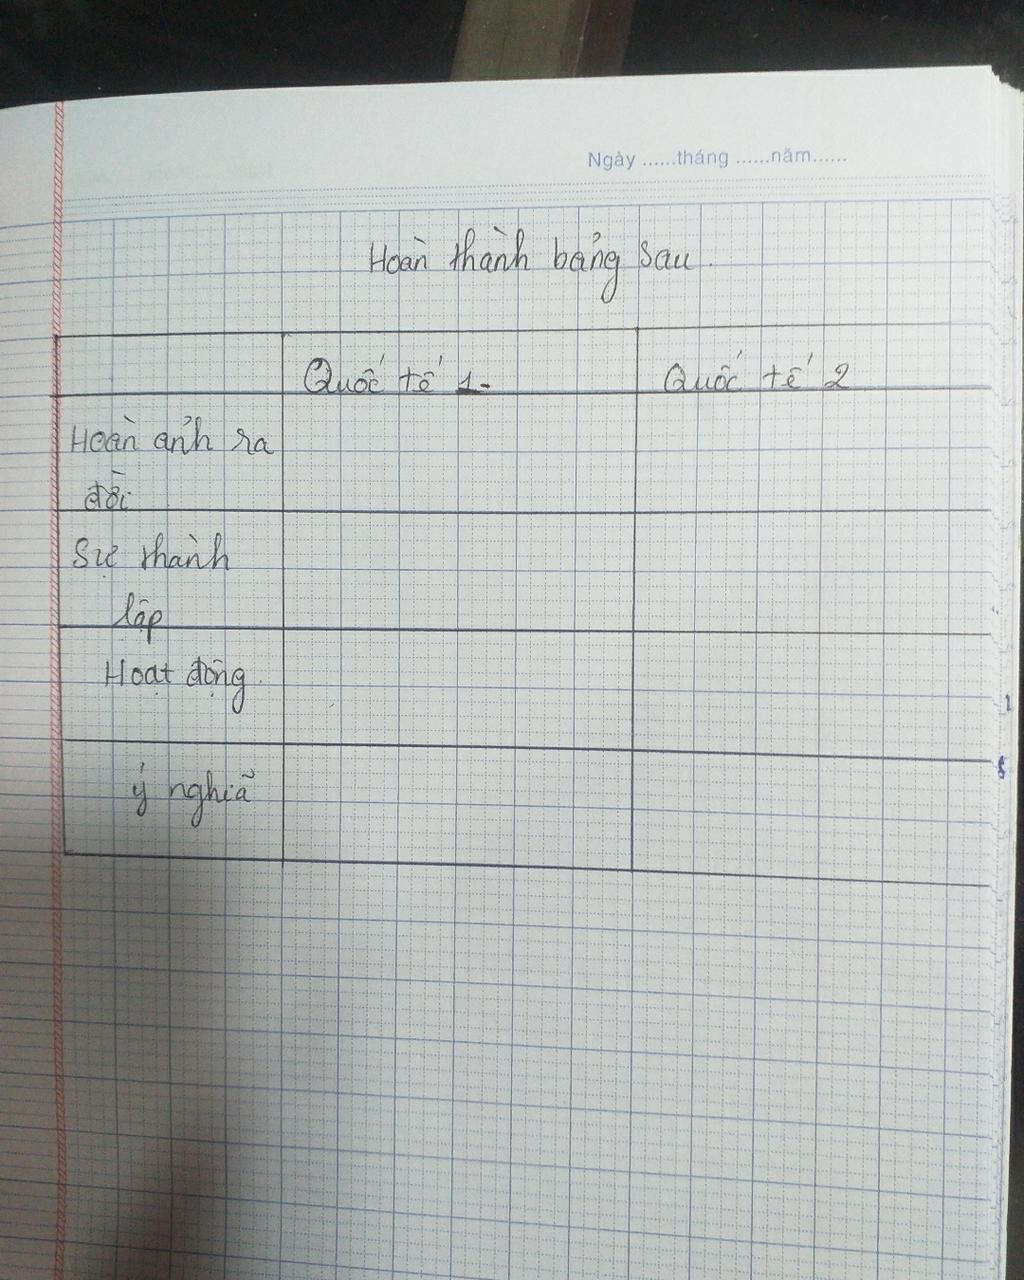 Ngày ......tháng ......năm......
Hoàn thành bảng sau.
Quốc tế 1-
Quốc tế 2
Hoàn cảnh ra
đời
Sự thành
lập
Hoạt động.
ý nghĩa